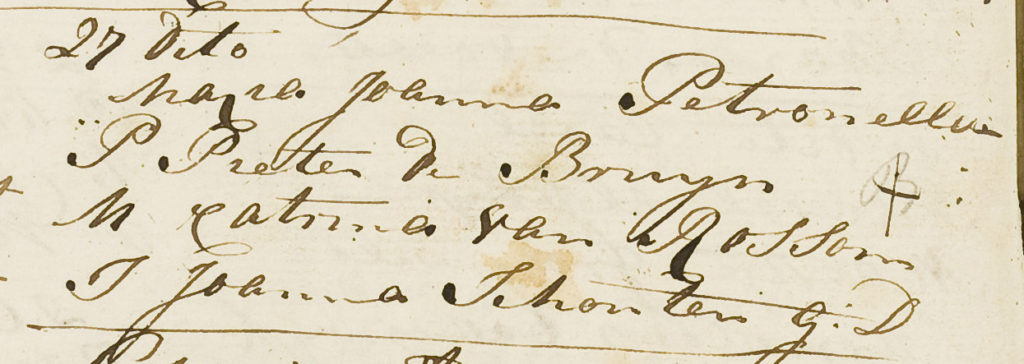 27 Dito
Maria Joanna Petronella
P Pieter de Bruyn
M Catrina van Rossom
T Joanna Schouten g: D